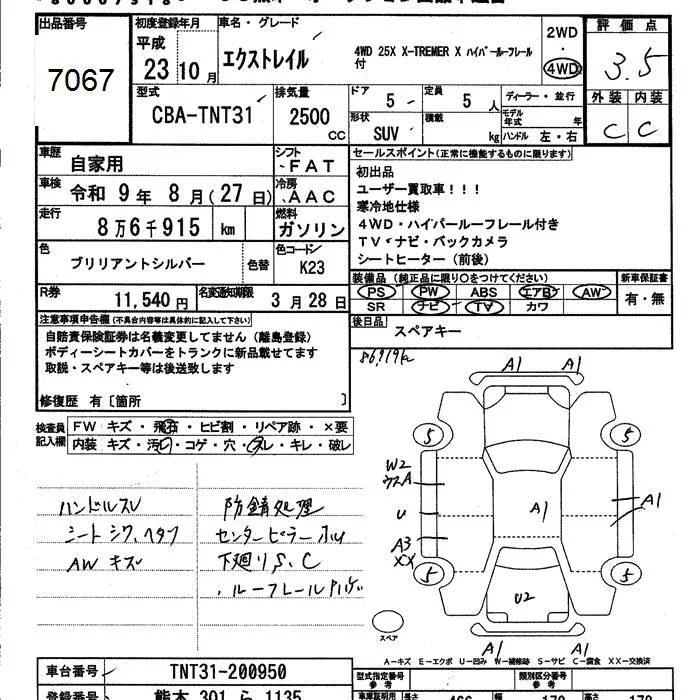 出品番号
7067
初度登録年月
平成
23年10月
車名・グレード
エクストレイル
4WD 25X X-TREMER X ハイパールーフレール
付
2WD
・
4WD
評価点
3.5
外装 内装
C C
型式
CBA-TNT31
排気量
2500
CC
ドア
5
定員
5人
形状
SUV
積載
kg
ディーラー・並行
モデル
年式 年
ハンドル 左・右
車歴
自家用
シフト
FAT
車検
令和 9年 8月(27日)
冷房
AAC
走行
8万6千915 km
燃料
ガソリン
色
ブリリアントシルバー
色替
色コード
K23
R券
11,540円
名変通知期限
3月28日
セールスポイント(正常に機能するものに限ります)
初出品
ユーザー買取車!!!
寒冷地仕様
4WD・ハイパールーフレール付き
TV・ナビ・バックカメラ
シートヒーター(前後)
装備品(純正品に限り○をつけてください)
PS PW ABS エアB AW
SR ナビ TV カワ
新車保証書
有・無
後日品
スペアキー
注意事項申告欄(不具合内容等は具体的に記入して下さい)
自賠責保険証券は名義変更してません(離島登録)
ボディーシートカバーをトランクに新品載せてます
取説・スペアキー等は後送致します
修復歴 有〔箇所 〕
検査員
記入欄
FW キズ・飛石・ヒビ割・リペア跡・×要
内装 キズ・汚レ・コゲ・穴・スレ・キレ・破レ
ハンドルスレ
シートシワ、ヘタフ
AW キズ
防錆処理
センターピラー
下廻りS、C
ルーフレール
86,919km
A1 A1
5 5
W2
ウスA
U
A3
XX
A1
A1
5 5
U2
スペア
A1 A1
A-キズ E-エクボ U-凹み W-補修跡 S-サビ C-腐食 XX-交換済
車台番号
TNT31-200950
型式指定番号
類別区分番号
登録番号
熊本 301 ら 1135